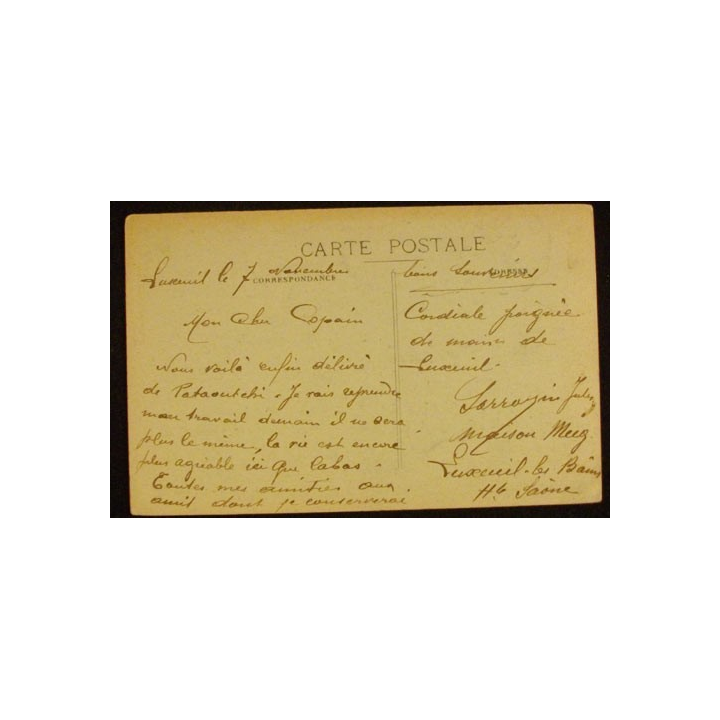 CARTE POSTALE
CORRESPONDANCE
Luxeuil le 7 Novembre
Mon cher Copain
Nous voilà enfin délivré
de Pataoutchi. Je vais reprendre
mon travail demain il ne sera
plus le même, la vie est encore
plus agréable ici que labas.
Toutes mes amitiés aux
amis dont je conserverai
bons souvenirs
Cordiale poignée
de main de
Luxeuil.
Maison
Luxeuil-les Bains
Hte Saône